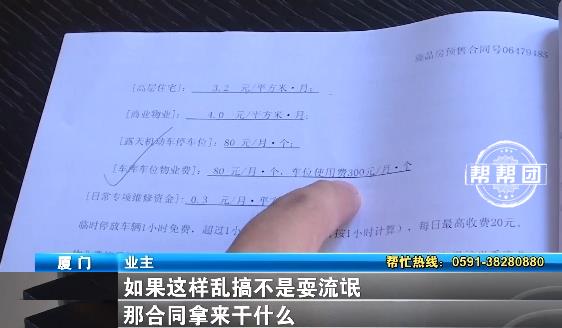 商品房预售合同号06479485
[高层住宅]: 3.2 元/平方米·月;
[商业物业]: 4.0 元/平方米·月;
[露天机动车停车位]: 80 元/月·个;
[车库车位物业费]: 80 元/月·个, 车位使用费300元/月·个
帮帮团
[日常专项维修资金]: 0.3 元/平
临时停放车辆1小时免费, 超过1小 按1小时计算), 每日最高收费20元。
厦门 业主 帮忙热线: 0591-38280880
如果这样乱搞不是耍流氓
那合同拿来干什么